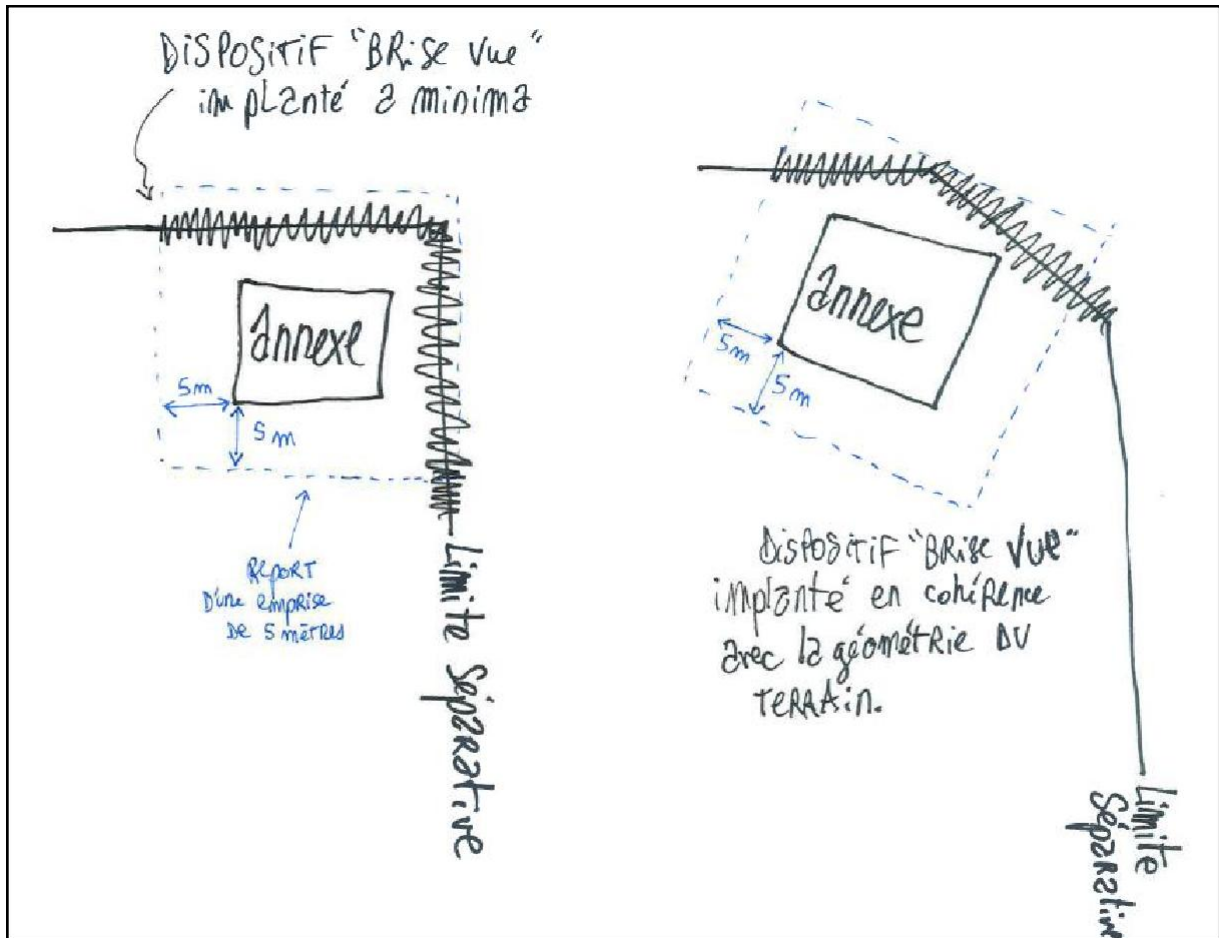 DISPOSITIF "BRise Vue"
implanté a minima
annexe
5m
5m
REPORT
D'une emprise
De 5 mètres
Limite Séparative
annexe
5m
5m
DISPOSITIF "BRise Vue"
implanté en cohérence
avec la géométrie DU
TERRAin.
Limite
Séparative